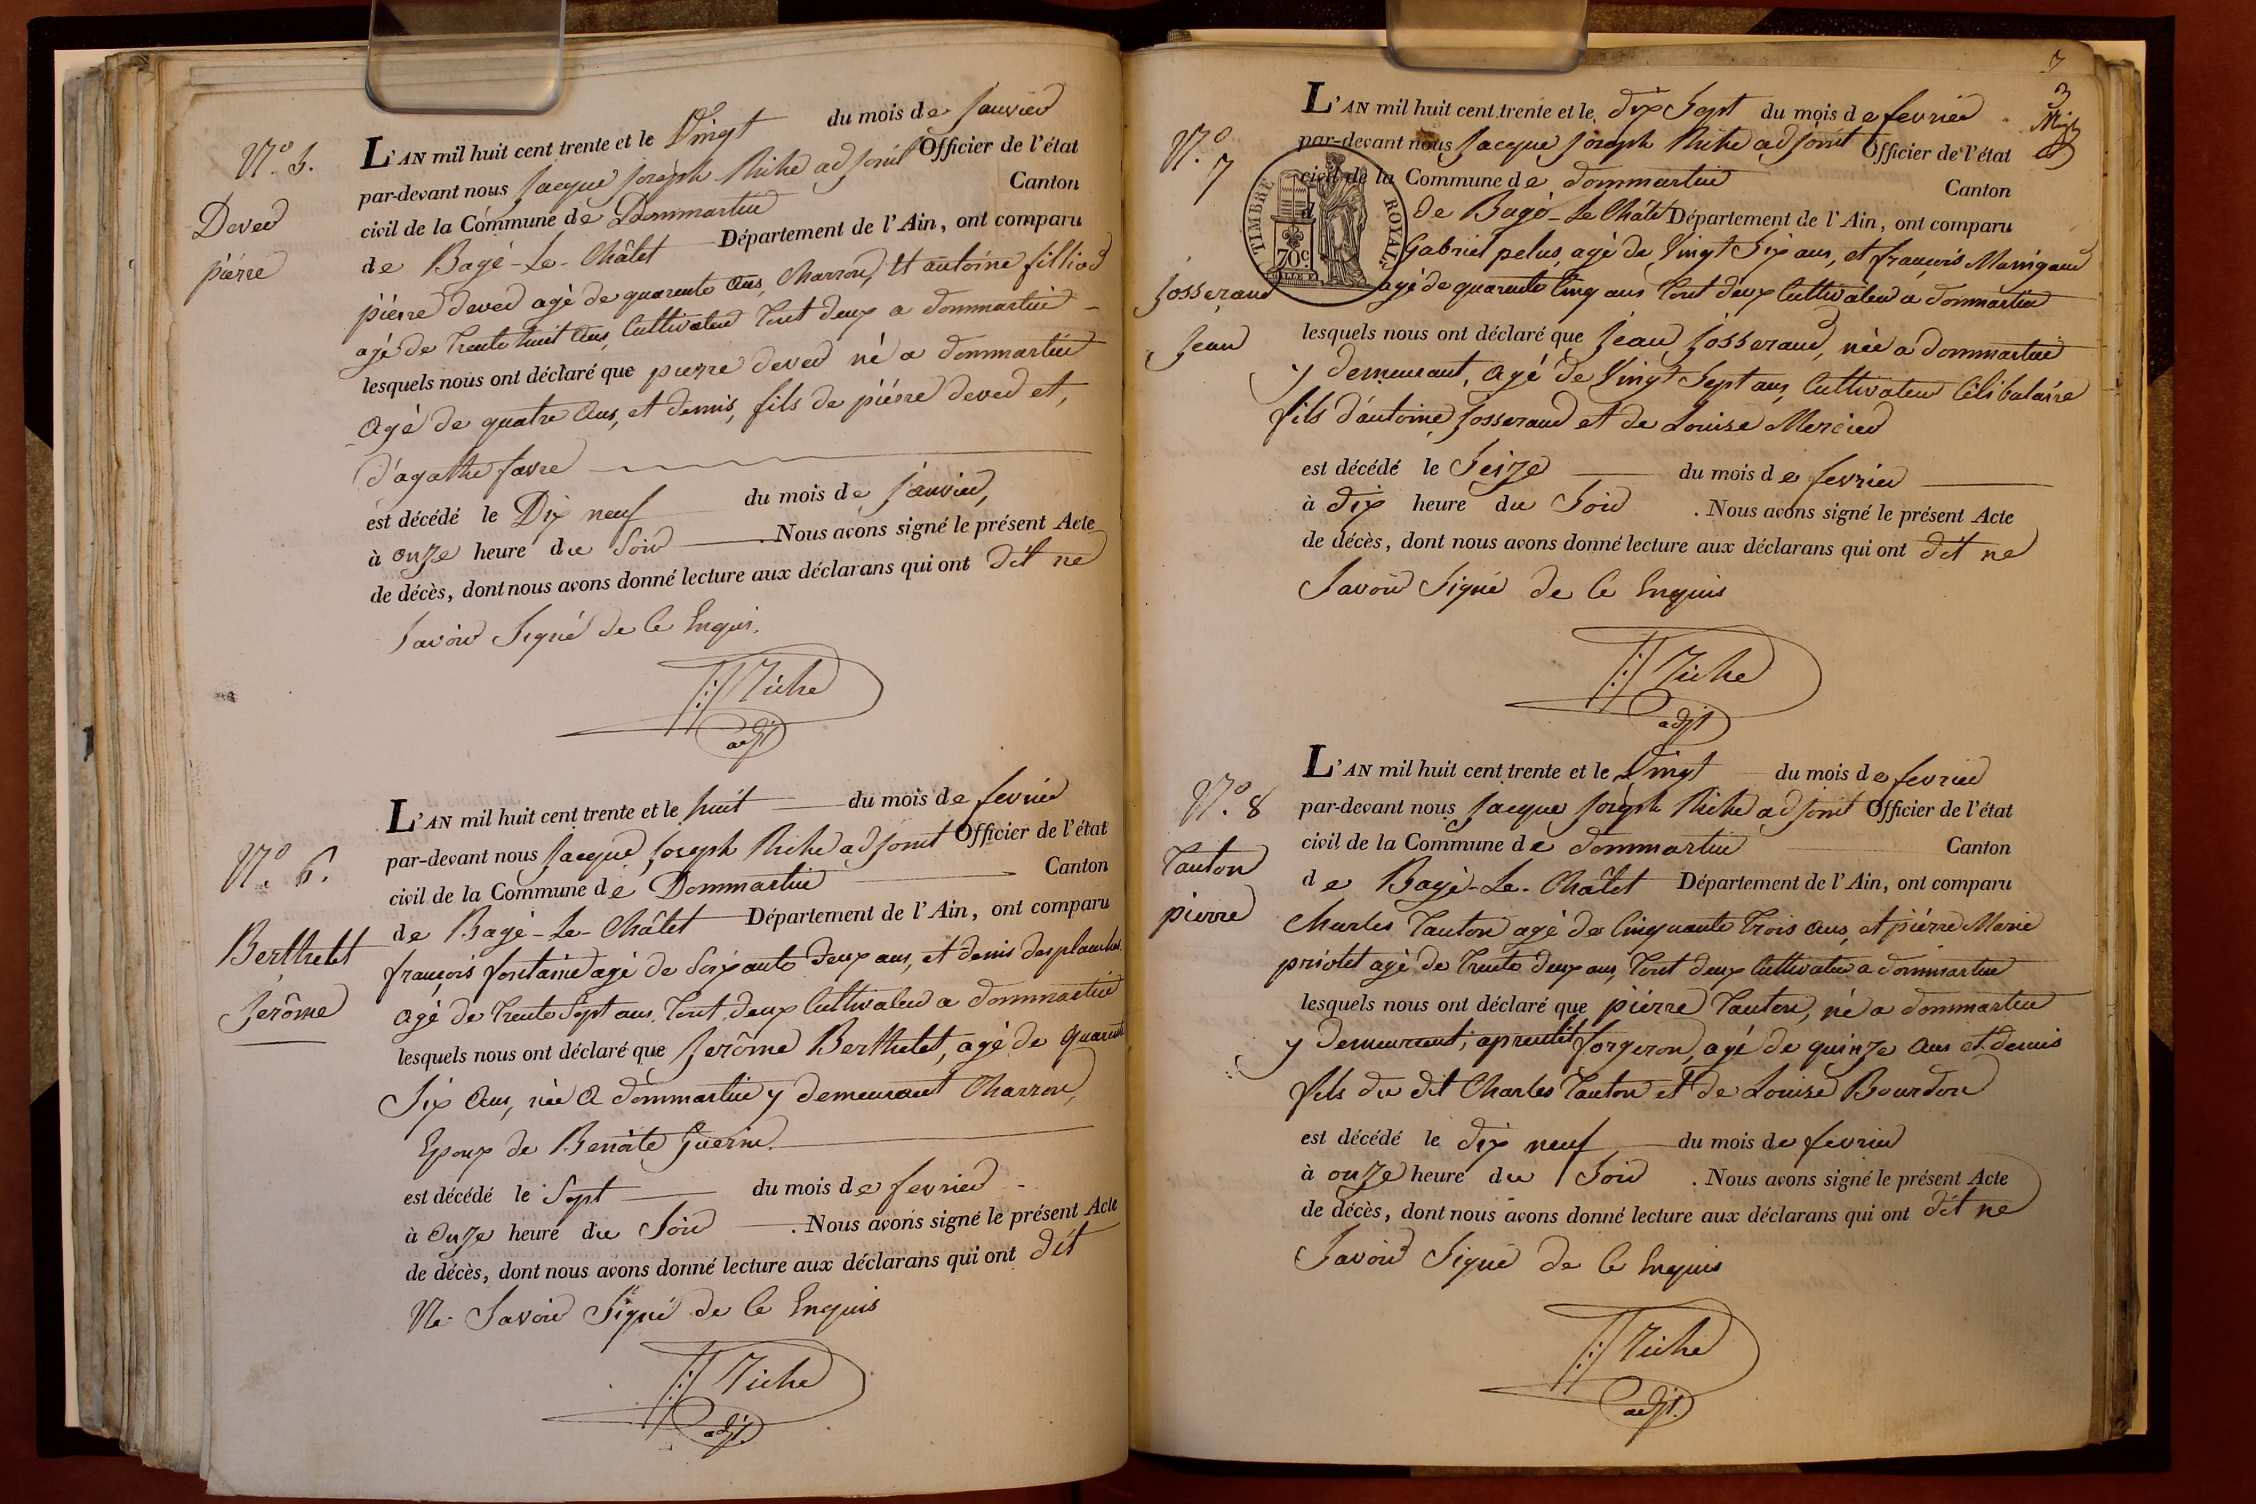 N.° 5.
Dever
pierre
L'AN mil huit cent trente et le Vingt du mois de Janvier
par-devant nous Jacque Joseph Riche adjoint Officier de l'état
civil de la Commune de Dommartin Canton
de Bagé-Le-Châtel Département de l'Ain, ont comparu
pierre dever agé de quarente ans, Charron, et antoine filliod
agé de trente huit ans, Cultivateur tout deux a dommartin
lesquels nous ont déclaré que pierre dever né a dommartin
agé de quatre ans, et demis, fils de pierre dever et,
d'agathe favre
est décédé le Dix neuf du mois de janvier,
à onze heure du Soir . Nous avons signé le présent Acte
de décès, dont nous avons donné lecture aux déclarans qui ont dit ne
Savoir Signé de ce Enquis.
Riche
adjt
N.° 6.
Berthelet
Jerôme
L'AN mil huit cent trente et le huit du mois de fevrier
par-devant nous Jacque Joseph Riche adjoint Officier de l'état
civil de la Commune de Dommartin Canton
de Bagé-Le-Châtel Département de l'Ain, ont comparu
françois fontaine agé de Soixante deux ans, et denis desplanches
agé de trente Sept ans, tout deux Cultivateur a dommartin
lesquels nous ont déclaré que Jerôme Berthelet, agé de quarente
Six ans, née a dommartin y demeurant Charron,
Epoux de Benoite Guerin
est décédé le Sept du mois de fevrier
à Onze heure du Soir . Nous avons signé le présent Acte
de décès, dont nous avons donné lecture aux déclarans qui ont dit
Ne Savoir Signé de ce Enquis
Riche
adjt.
7
3
N.° 7
Josserand
Jean
TIMBRE ROYAL
70c.
L'AN mil huit cent trente et le dix Sept du mois de fevrier
par-devant nous Jacque Joseph Riche adjoint Officier de l'état
civil de la Commune de dommartin Canton
de Bagé-Le Châtel Département de l'Ain, ont comparu
Gabriel pelus, agé de Vingt Six ans, et françois Manigand
agé de quarente Cinq ans tout deux Cultivateur a dommartin
lesquels nous ont déclaré que Jean Josserand, née a dommartin
y demeurant, agé de Vingt Sept ans, Cultivateur Célibataire
fils d'antoine Josserand et de Louise Mercier
est décédé le Seize du mois de fevrier
à dix heure du Soir . Nous avons signé le présent Acte
de décès, dont nous avons donné lecture aux déclarans qui ont dit ne
Savoir Signé de ce Enquis
Riche
adjt
N.° 8
Tauton
pierre
L'AN mil huit cent trente et le Vingt du mois de fevrier
par-devant nous Jacque Joseph Riche adjoint Officier de l'état
civil de la Commune de dommartin Canton
de Bagé-Le-Châtel Département de l'Ain, ont comparu
Charles Tauton agé de Cinquante trois ans, et pierre Marie
priolet agé de trente deux ans, tout deux Cultivateur a dommartin
lesquels nous ont déclaré que pierre Tauton, né a dommartin
y demeurrant, aprentit forgeron, agé de quinze ans et demis
fils du dit Charles Tauton et de Louise Bourdon
est décédé le dix neuf du mois de fevrier
à onze heure du Soir . Nous avons signé le présent Acte
de décès, dont nous avons donné lecture aux déclarans qui ont dit ne
Savoir Signé de ce Enquis
Riche
adjt.